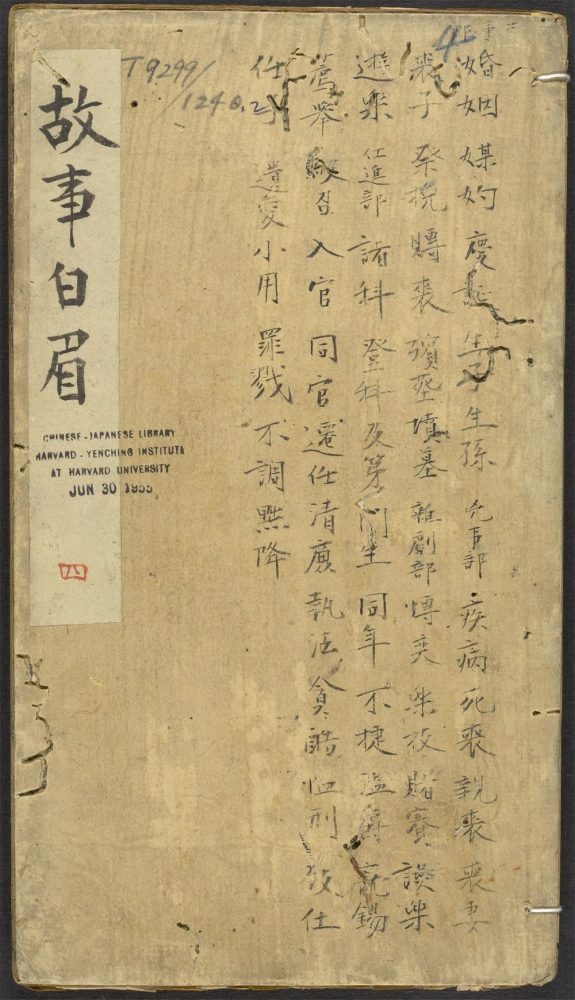 婚姻 媒妁 慶誕 生子 生孫 凶事部 疾病 死喪 親喪 喪妻
喪子 祭挽 賻喪 殯塟 墳墓 雜劇部 愽奕 樂技 賭賽 讌樂
遊樂 仕進部 諸科 登科 及第 門生 同年 不捷 盜得 寵錫
薦舉 徵召 入官 同官 遷任 清廉 執法 貪酷 恤刑 致仕
任子 遺変 小用 罪戮 不調 黜降
故事白眉
T9299/
1240.2
4
CHINESE-JAPANESE LIBRARY
HARVARD-YENCHING INSTITUTE
AT HARVARD UNIVERSITY
JUN 30 1955
四